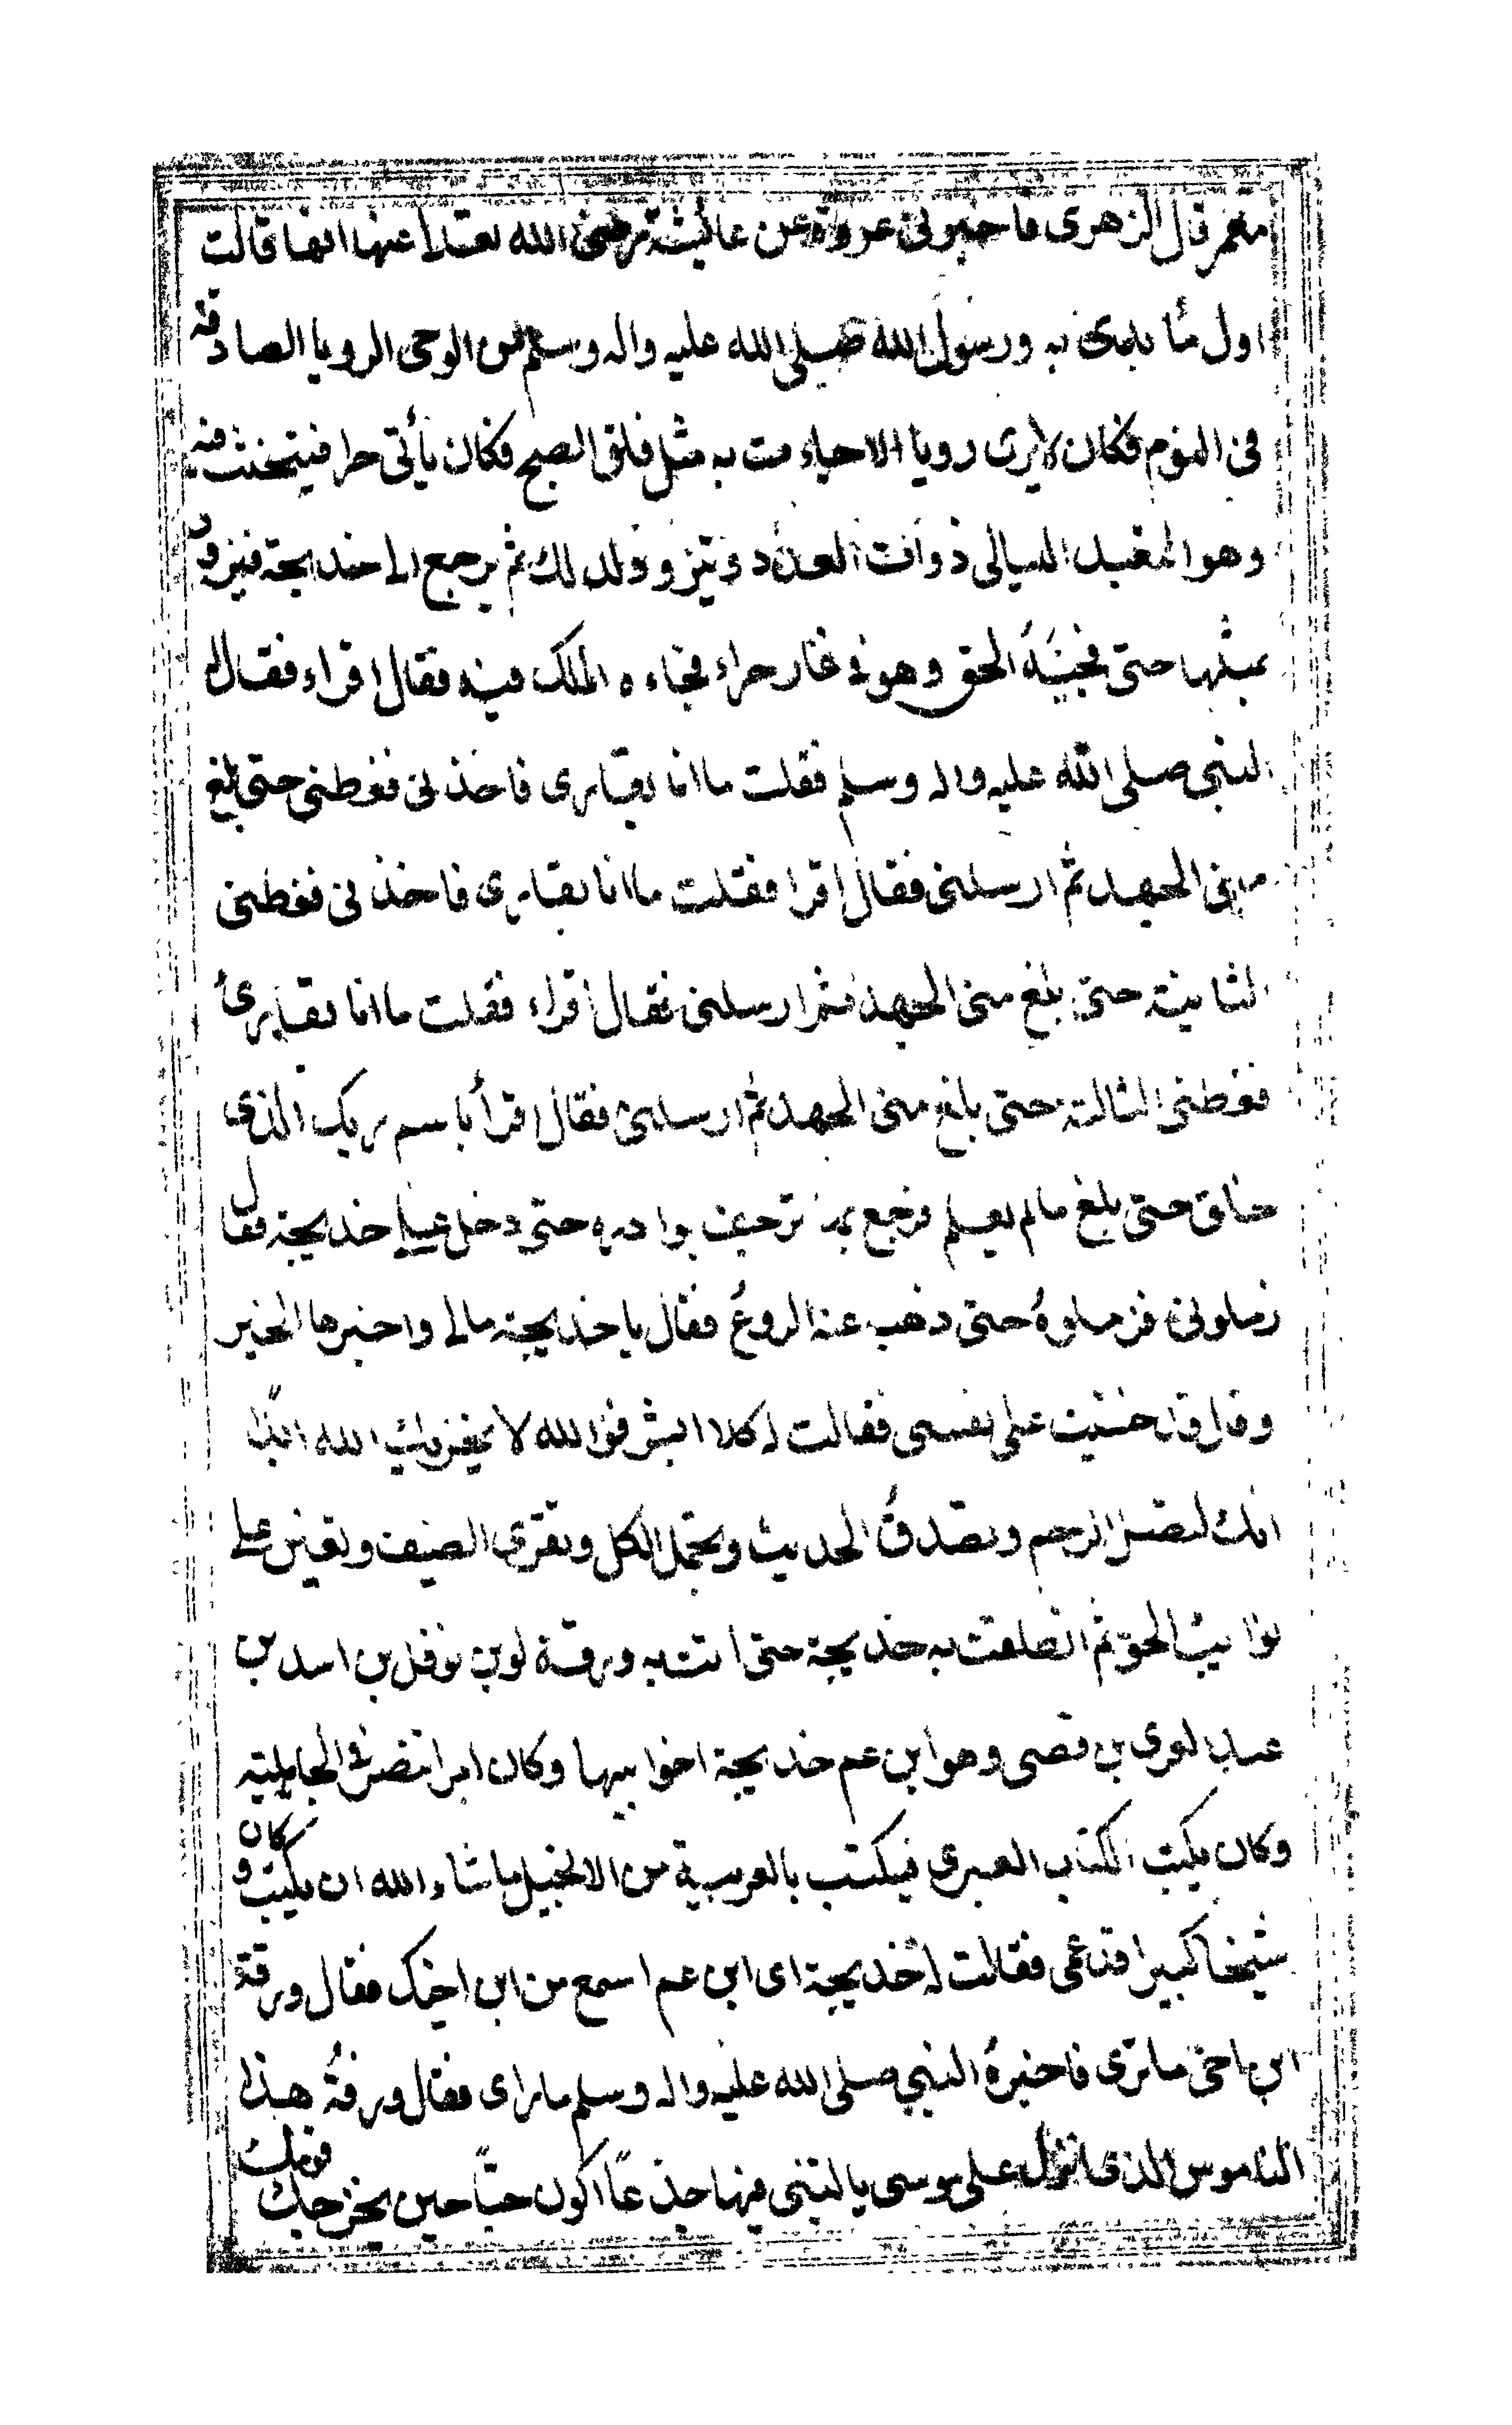 معمر قال الزهرى فاخبرنى عروة عن عائشة رضى الله تعالى عنها انها قالت
اول ما بدى به ورسول الله صلى الله عليه واله وسلم من الوحى الرويا الصادقة
فى النوم فكان لايرى رويا الا جاءت به مثل فلق الصبح فكان يأتى حرا فيتحنث فيه
وهو التعبد الليالى ذوات العدد ويتزود لذلك ثم يرجع الى خديجة فيزود
بمثلها حتى فجيئه الحق وهو فى غار حراء فجاءه الملك فيه فقال اقراء فقال له
النبى صلى الله عليه واله وسلم فقلت ما انا بقارى فاخذنى فغطنى حتى بلغ
منى الجهد ثم ارسلنى فقال اقرا فقلت ما انا بقارى فاخذنى فغطنى
الثانية حتى بلغ منى الجهد ثم ارسلنى فقال اقراء فقلت ما انا بقارئ
فغطنى الثالثة حتى بلغ منى الجهد ثم ارسلنى فقال اقرأ باسم ربك الذى
خلق حتى بلغ مالم يعلم فرجع بها ترجف بوادره حتى دخل على خديجة فقال
زملونى فزملوهُ حتى ذهب عنه الروعُ فقال يا خديجة مالى واخبرها الخبر
وقال قد خشيت على نفسى فقالت له كلا ابشر فوالله لا يخزيك الله ابدًا
انك لتصل الرحم وتصدقُ الحديث وتحمل الكل وتقرى الضيف وتعين على
نوائب الحق ثم انطلقت به خديجة حتى اتت به ورقة بن نوفل بن اسد بن
عبد العزى بن قصى وهو ابن عم خديجة اخو ابيها وكان امرا تنصر فى الجاهلية
وكان يكتب الكتاب العبرى فيكتب بالعربية من الانجيل ماشاء الله ان يكتب وكان
شيخا كبيرا قد عمى فقالت له خديجة اى ابن عم اسمع من ابن اخيك فقال ورقة
ابن اخى ماترى فاخبرهُ النبى صلى الله عليه واله وسلم مارأى فقال ورقةُ هذا
الناموس الذى انزل على موسى ياليتنى فيها جذعًا اكون حيًا حين يخرجك قومك